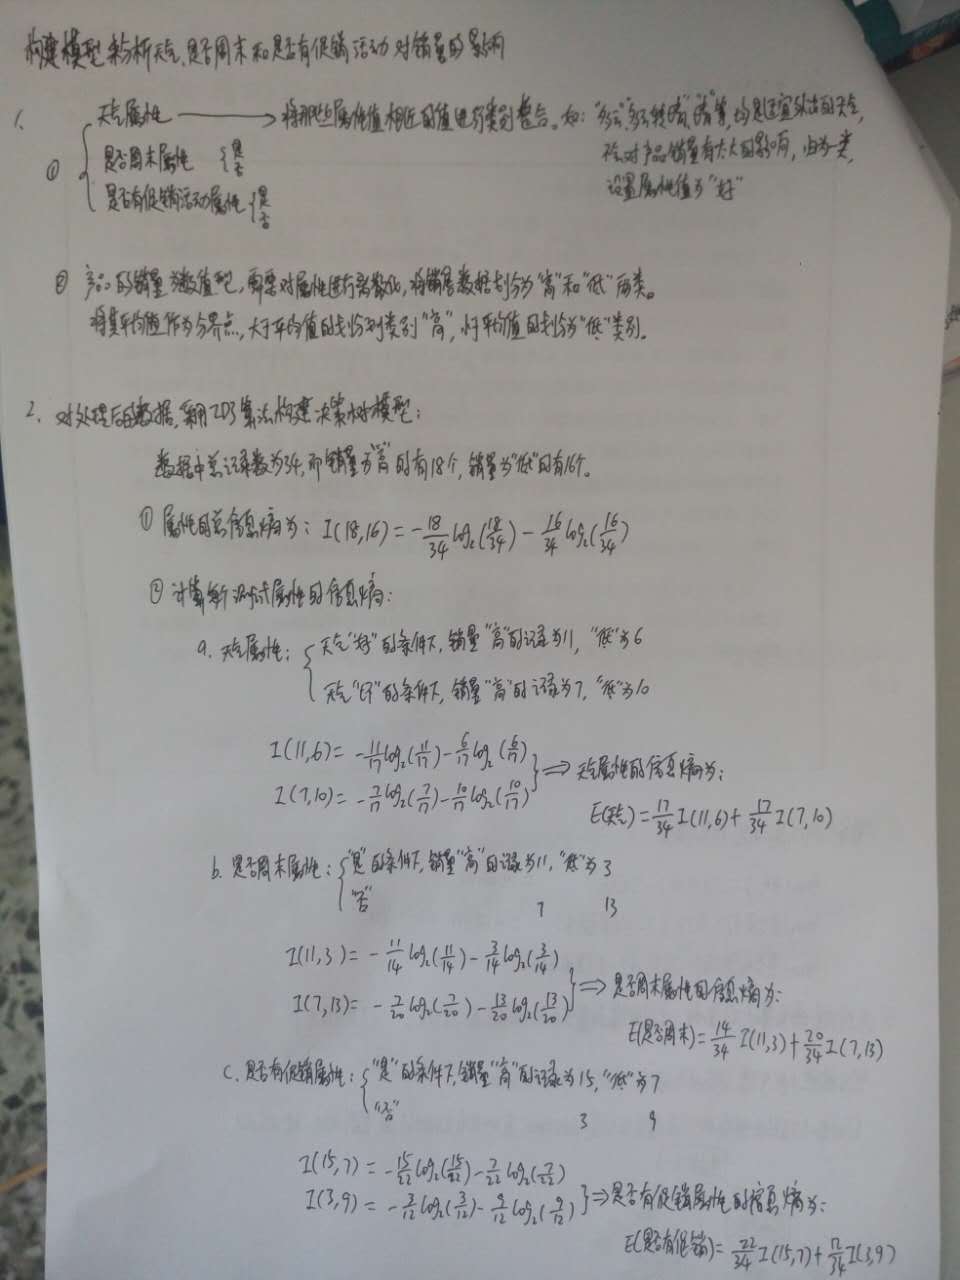 构建模型来分析天气、是否周末和是否有促销活动对销量的影响
1. 天气属性 → 将那些属性值相近的值进行类别整合。如:"多云"、"多云转晴"、"晴"等,均是适宜外出的天气,
① 是否周末属性 {是 否
不会对产品销量有太大的影响,归为一类,
是否有促销活动属性 {是 否
设置属性值为"好"
② 产品的销量为数值型,需要对属性进行离散化,将销售数据划分为"高"和"低"两类。
将其平均值作为分界点,大于平均值的划分到类别"高",小于平均值的划分为"低"类别。
2. 对处理后的数据,采用ID3算法构建决策树模型:
数据中总记录数为34,而销量为"高"的有18个,销量为"低"的有16个。
① 属性的总信息熵为: I(18,16) = -18/34 log₂(18/34) - 16/34 log₂(16/34)
② 计算每个测试属性的信息熵:
a. 天气属性: 天气"好"的条件下,销量"高"的记录为11,"低"为6
天气"坏"的条件下,销量"高"的记录为7,"低"为10
I(11,6) = -11/17 log₂(11/17) - 6/17 log₂(6/17)
⇒ 天气属性的信息熵为:
I(7,10) = -7/17 log₂(7/17) - 10/17 log₂(10/17)
E(天气) = 17/34 I(11,6) + 17/34 I(7,10)
b. 是否周末属性: "是"的条件下,销量"高"的记录为11,"低"为3
"否" 7 13
I(11,3) = -11/14 log₂(11/14) - 3/14 log₂(3/14)
⇒ 是否周末属性的信息熵为:
I(7,13) = -7/20 log₂(7/20) - 13/20 log₂(13/20)
E(是否周末) = 14/34 I(11,3) + 20/34 I(7,13)
c. 是否有促销属性: "是"的条件下,销量"高"的记录为15,"低"为7
"否" 3 9
I(15,7) = -15/22 log₂(15/22) - 7/22 log₂(7/22)
I(3,9) = -3/12 log₂(3/12) - 9/12 log₂(9/12)
⇒ 是否有促销属性的信息熵为:
E(是否有促销) = 22/34 I(15,7) + 12/34 I(3,9)